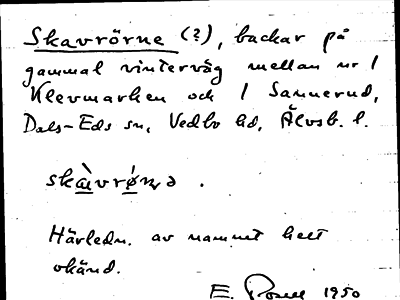 Skavrörne (?), backar på
gammal vinterväg mellan nr 1
Klevmarken och 1 Sannerud,
Dals-Eds sn, Vedbo hd, Älvsb. l.
Härledn. av namnet helt
okänd.
E. 1950